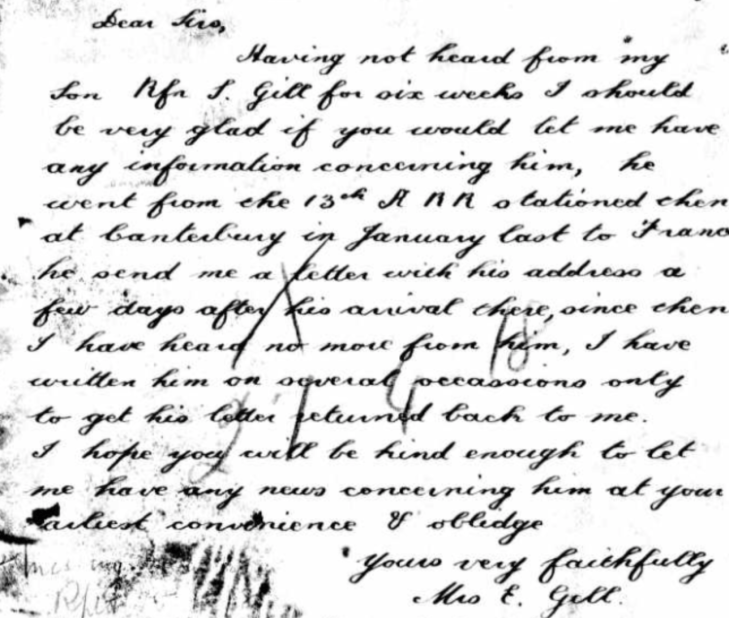 Dear Sirs,
Having not heard from my
Son Rfn S. Gill for six weeks I should
be very glad if you would let me have
any information concerning him, he
went from the 13th A R R stationed then
at Canterbury in January last to Franc
he send me a letter with his address a
few days after his arrival there, since then
I have heard no more from him, I have
written him on several occassions only
to get his letter returned back to me.
I hope you will be kind enough to let
me have any news concerning him at your
earliest convenience & obledge
Yours very faithfully
Mrs E. Gill.
missing